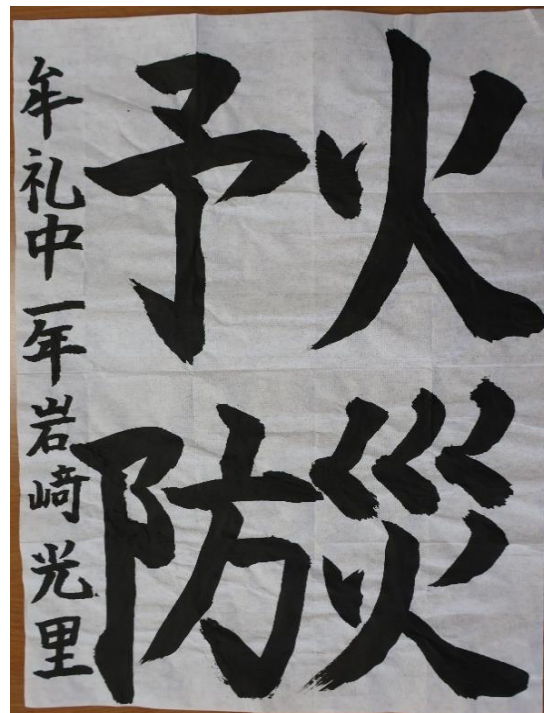 火災
予防
牟礼中一年岩﨑光里